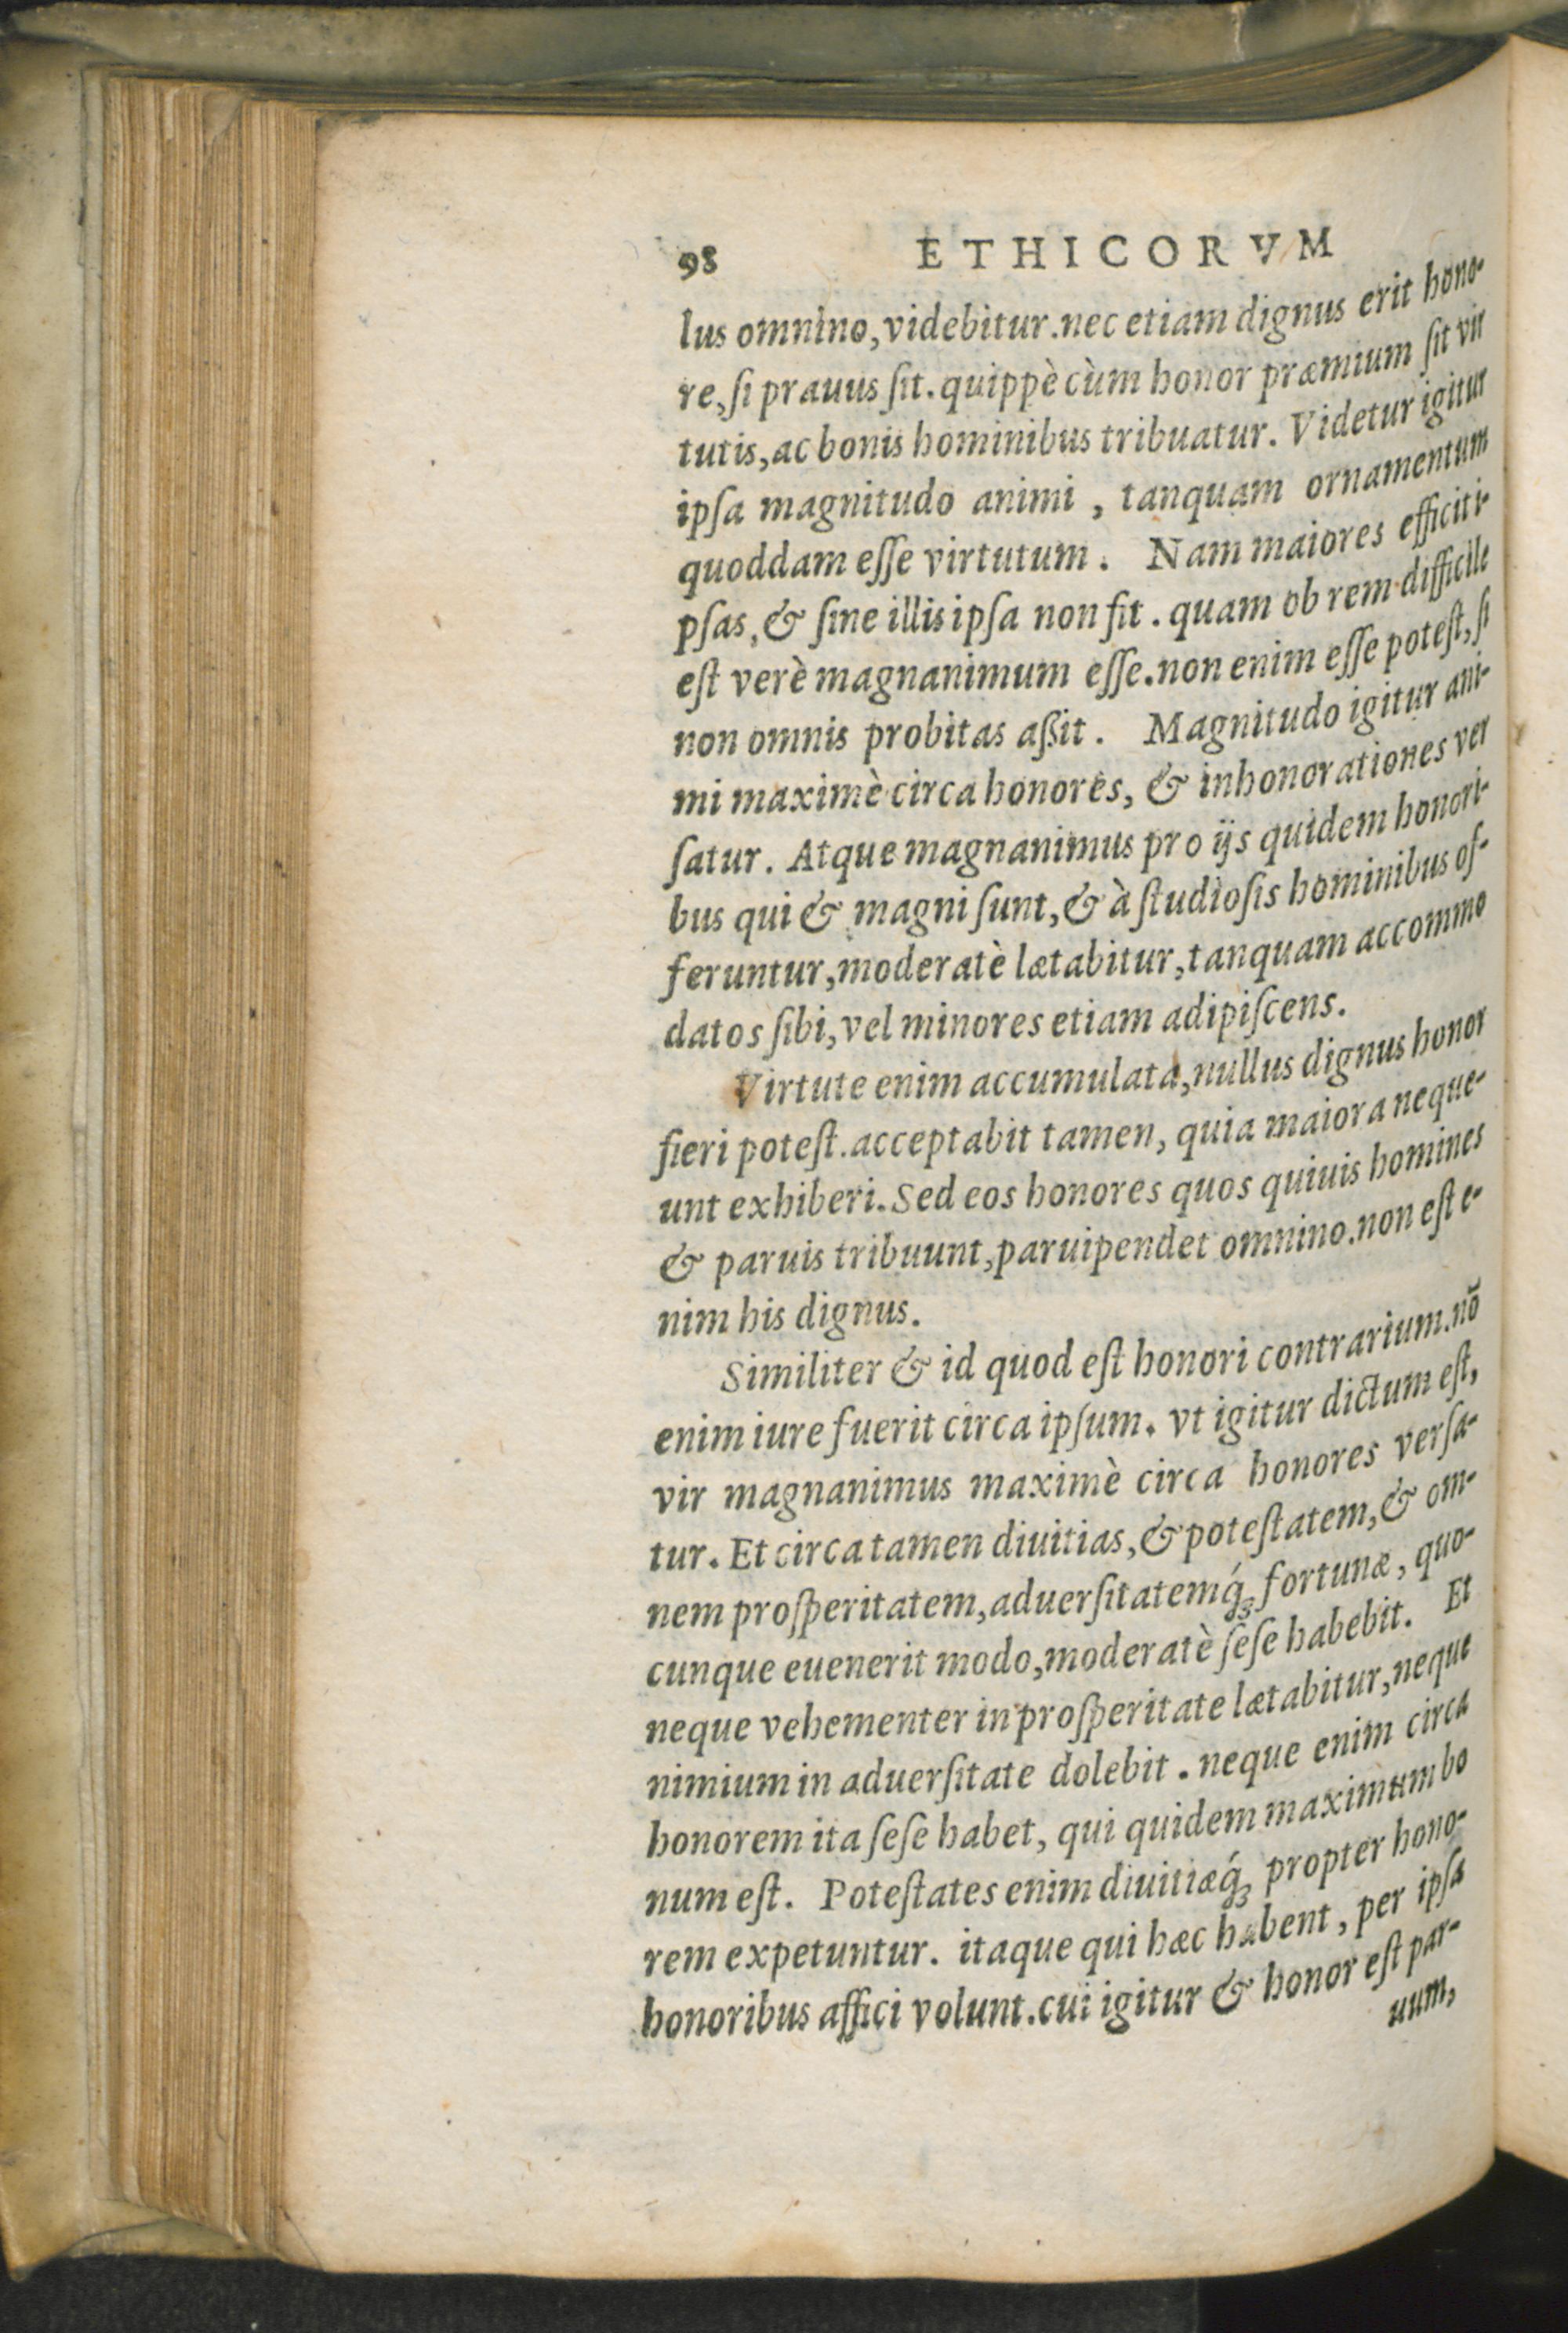 98 ETHICORVM
lus omnino, videbitur. nec etiam dignus erit hono-
re, ſi prauus ſit. quippè cùm honor præmium ſit vir
tutis, ac bonis hominibus tribuatur. Videtur igitur
ipſa magnitudo animi, tanquam ornamentum
quoddam eſſe virtutum. Nam maiores efficit i-
pſas, & ſine illis ipſa non fit. quam ob rem difficile
eſt verè magnanimum eſſe. non enim eſſe poteſt, ſi
non omnis probitas aßit. Magnitudo igitur ani-
mi maximè circa honores, & inhonorationes ver
ſatur. Atque magnanimus pro ijs quidem honori-
bus qui & magni ſunt, & à ſtudioſis hominibus of-
feruntur, moderatè lætabitur, tanquam accommo
datos ſibi, vel minores etiam adipiſcens.
Virtute enim accumulata, nullus dignus honor
fieri poteſt. acceptabit tamen, quia maiora neque-
unt exhiberi. Sed eos honores quos quiuis homines
& paruis tribuunt, paruipendet omnino. non eſt e-
nim his dignus.
Similiter & id quod eſt honori contrarium. nō
enim iure fuerit circa ipſum. vt igitur dictum eſt,
vir magnanimus maximè circa honores verſa-
tur. Et circa tamen diuitias, & poteſtatem, & om-
nem proſperitatem, aduerſitatemq́ꝫ fortunæ, quo-
cunque euenerit modo, moderatè ſeſe habebit. Et
neque vehementer in proſperitate lætabitur, neque
nimium in aduerſitate dolebit. neque enim circa
honorem ita ſeſe habet, qui quidem maximum bo
num eſt. Poteſtates enim diuitiæq́ꝫ propter hono-
rem expetuntur. itaque qui hæc habent, per ipſa
honoribus affici volunt. cui igitur & honor eſt par-
uum,